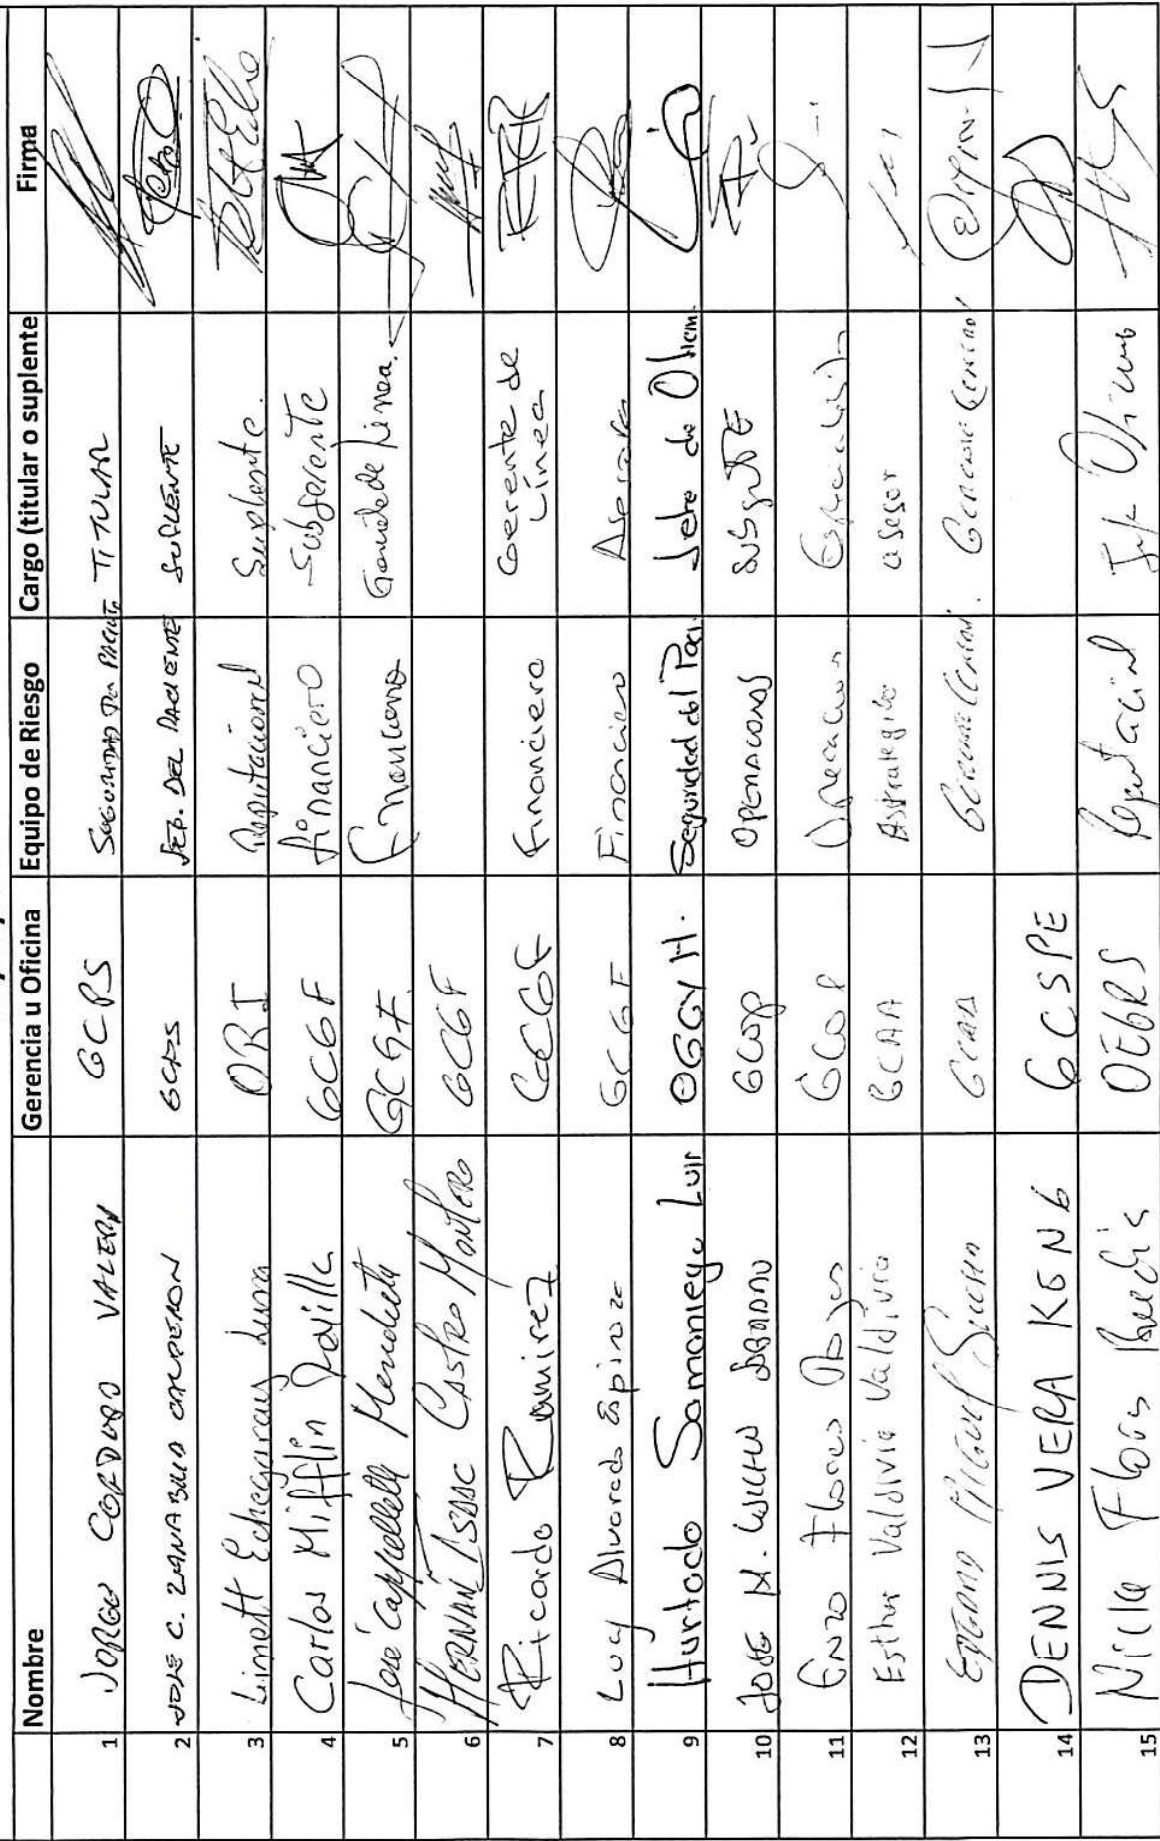 Nombre Gerencia u Oficina Equipo de Riesgo Cargo (titular o suplente Firma
1 JORGE CORDOVA VALERA GCPS SEGURIDAD DEL PACIENTE TITULAR
2 JOSE C. ZANABRIA CALDERON GCPS SEG. DEL PACIENTE SUPLENTE
3 Linett Echegaray Luna ORI Reputacional Suplente.
4 Carlos Mifflin Padilla GCGF financiero Subgerente
5 José Cappelletti Mendieta GCGF Financiero Gerente de Linea.
6 HERNÁN ISAAC CASTRO MONTERO GCGF
7 Ricardo Ramirez GCGF Financiero Gerente de
Línea
8 Lucy Alvarado Espinoza GCGF Financiero Asesora
9 Hurtado Samaniego Luis OGGyH. Seguridad del Paci. Jefe de Oficin.
10 JOSE M. GCOP OPERACIONES SUBGNTE
11 Enzo Flores GCOP Operaciones Especialista
12 Esther Valdivia Valdivia GCAA Estrategico asesor
13 EDGARD GCAA Gerente Central
14 DENNIS VERA KENG GCSPE
15 Flores OEGRS Reputacional Jefe Oficina